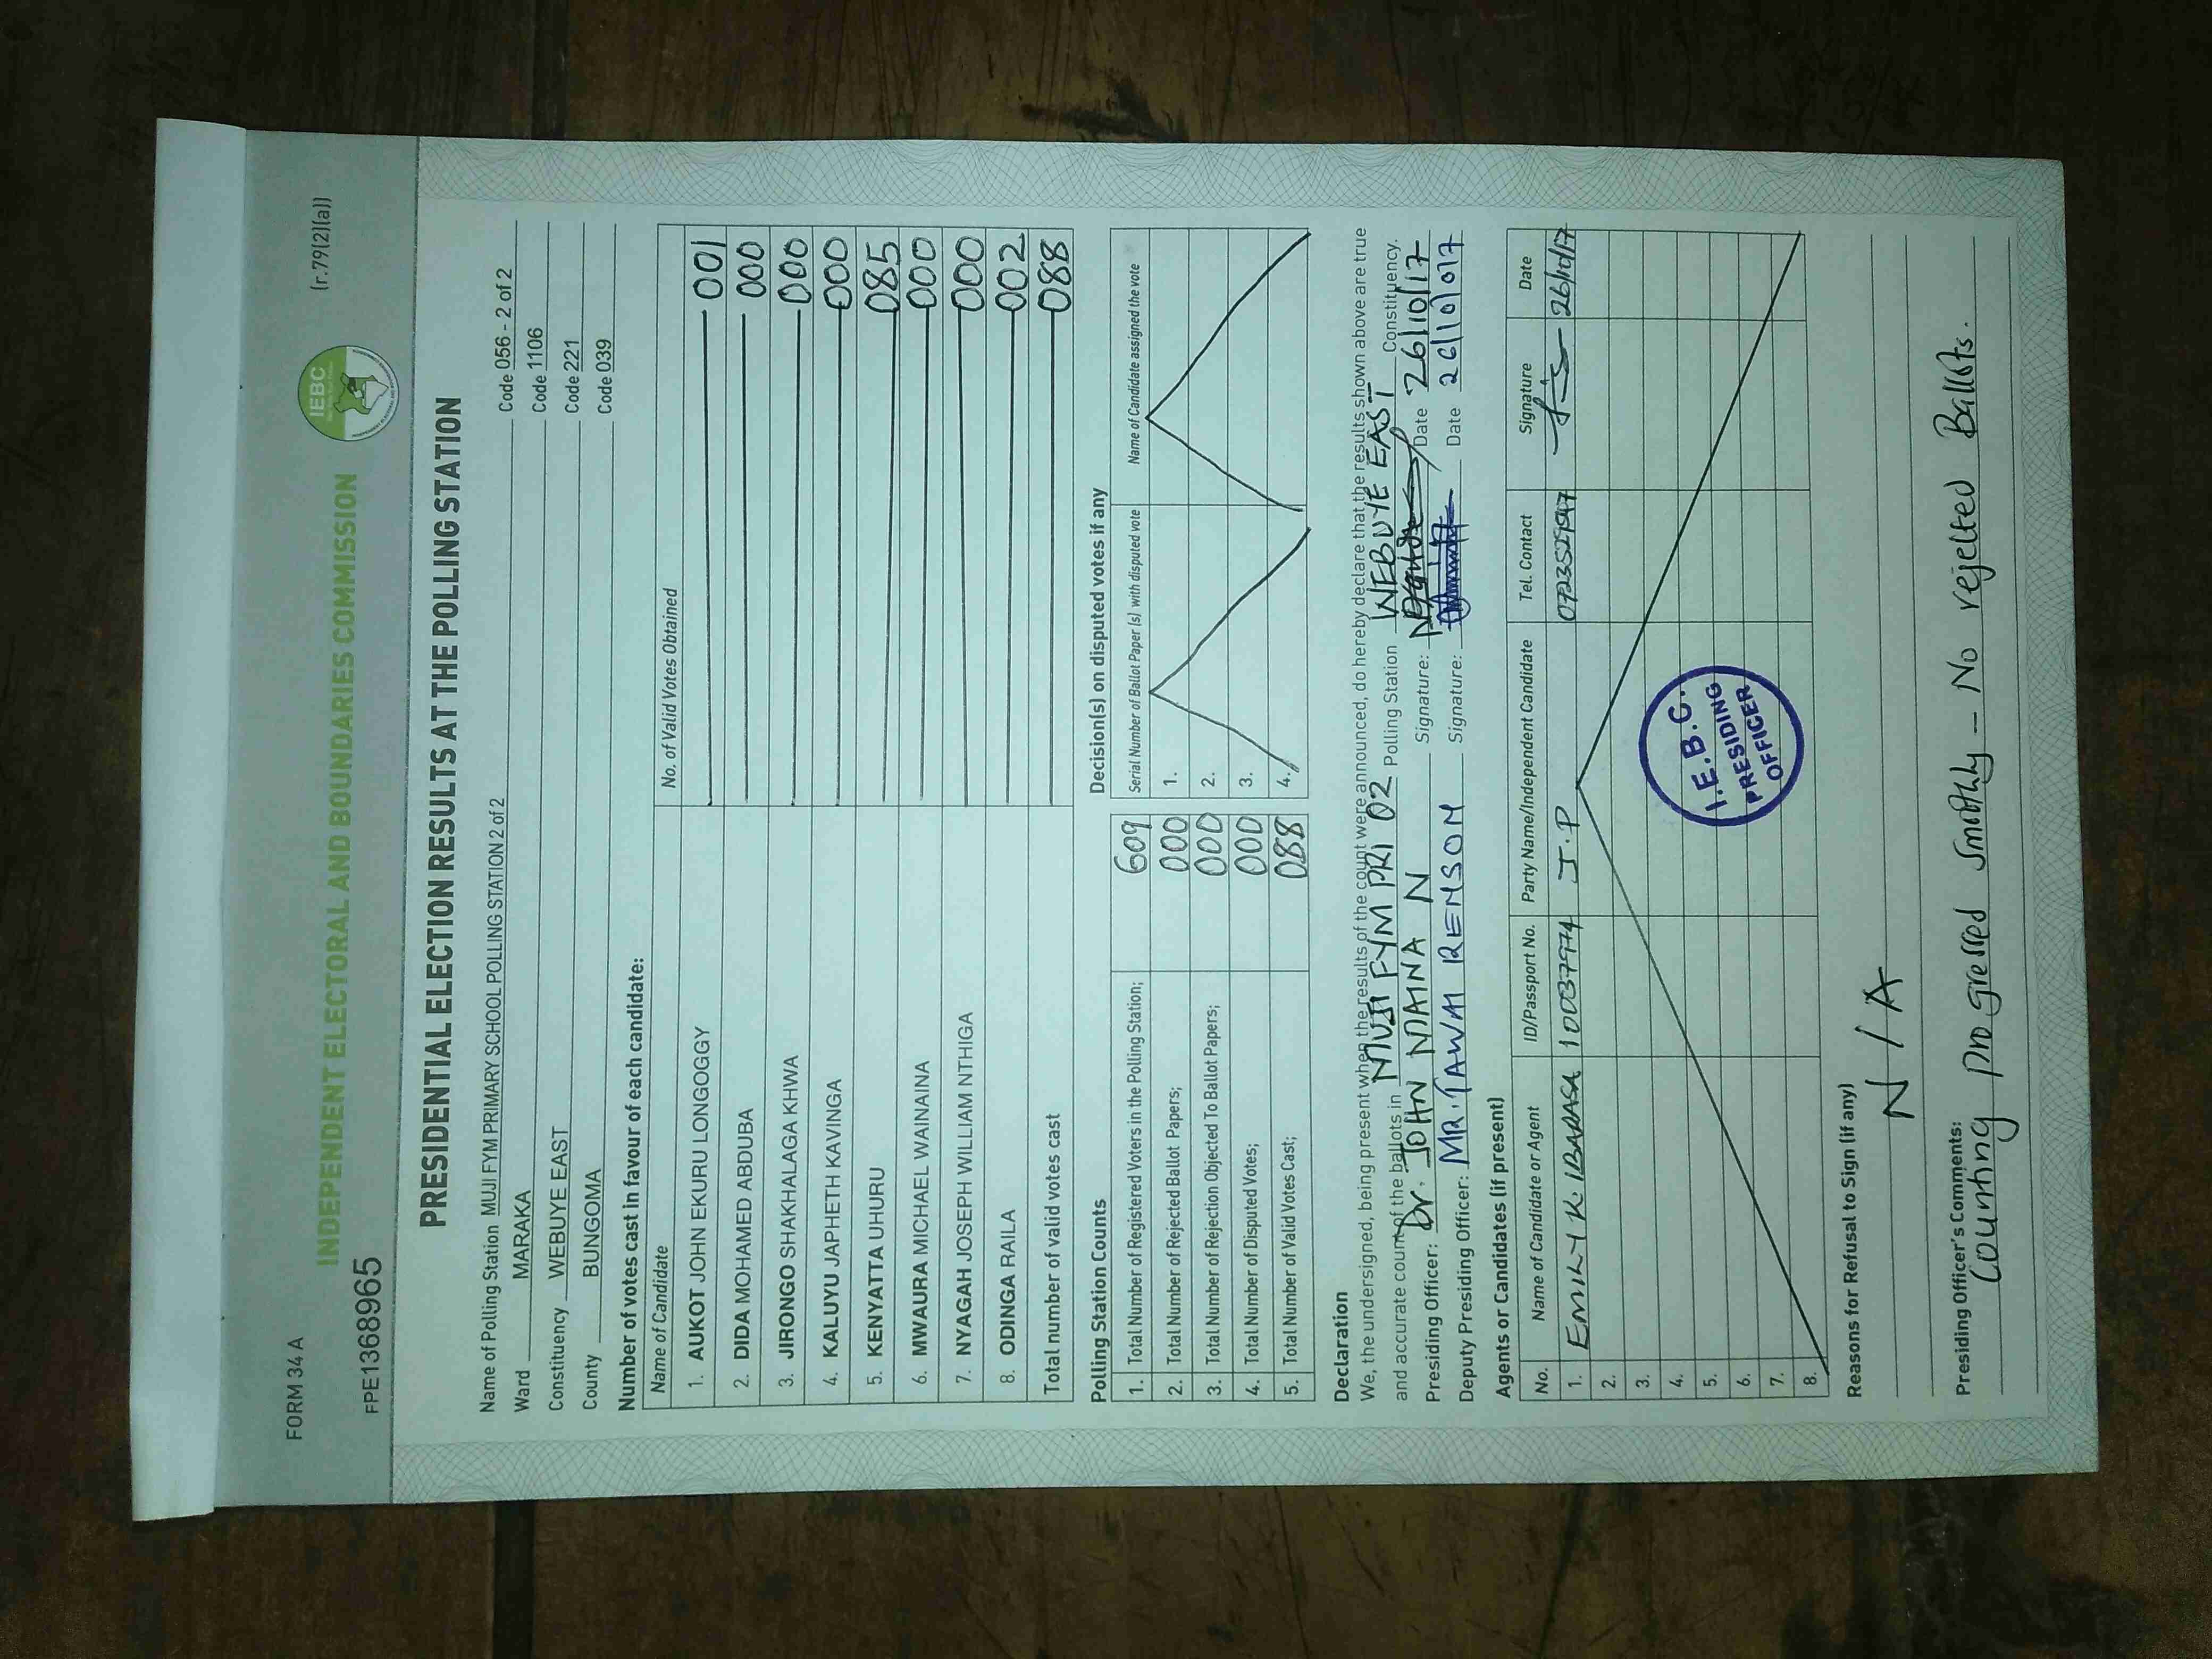 FORM 34 A
(r.79(2)(a))
INDEPENDENT ELECTORAL AND BOUNDARIES COMMISSION
IEBC
FPE1368965
PRESIDENTIAL ELECTION RESULTS AT THE POLLING STATION
Name of Polling Station MUJI FYM PRIMARY SCHOOL POLLING STATION 2 of 2 Code 056 - 2 of 2
Ward MARAKA Code 1106
Constituency WEBUYE EAST Code 221
County BUNGOMA Code 039
Number of votes cast in favour of each candidate:
Name of Candidate No. of Valid Votes Obtained
1. AUKOT JOHN EKURU LONGOGGY 001
2. DIDA MOHAMED ABDUBA 000
3. JIRONGO SHAKHALAGA KHWA 000
4. KALUYU JAPHETH KAVINGA 000
5. KENYATTA UHURU 085
6. MWAURA MICHAEL WAINAINA 000
7. NYAGAH JOSEPH WILLIAM NTHIGA 000
8. ODINGA RAILA 002
Total number of valid votes cast 088
Polling Station Counts
1. Total Number of Registered Voters in the Polling Station; 609
2. Total Number of Rejected Ballot Papers; 000
3. Total Number of Rejection Objected To Ballot Papers; 000
4. Total Number of Disputed Votes; 000
5. Total Number of Valid Votes Cast; 088
Decision(s) on disputed votes if any
Serial Number of Ballot Paper (s) with disputed vote Name of Candidate assigned the vote
1.
2.
3.
4.
Declaration
We, the undersigned, being present when the results of the count were announced, do hereby declare that the results shown above are true
and accurate count of the ballots in MUJI FYM PRI 02 Polling Station WEBUYE EAST Constituency.
Presiding Officer: Dr. JOHN MAINA N Signature: Date 26/10/17
Deputy Presiding Officer: MR. TAWAI RENSON Signature: Date 26/10/017
Agents or Candidates (if present)
No. Name of Candidate or Agent ID/Passport No. Party Name/Independent Candidate Tel. Contact Signature Date
1. EMILY K. IBARASA 10037974 J.P 26/10/17
2.
3.
4.
5.
6.
7.
8.
I.E.B.C.
PRESIDING
OFFICER
Reasons for Refusal to Sign (if any)
N/A
Presiding Officer's Comments:
Counting progressed Smothly - No rejected Ballots.